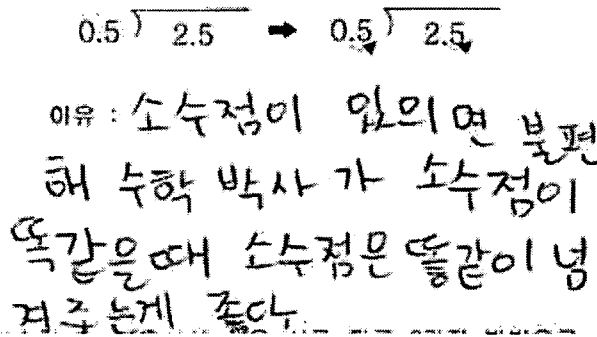 0.5 ) 2.5 ➡ 0.5 ) 2.5
이유 : 소수점이 있의면 불편
해 수학 박사 가 소수점이
똑같을때 소수점은 똘같이 넘
겨주는게 좋다.